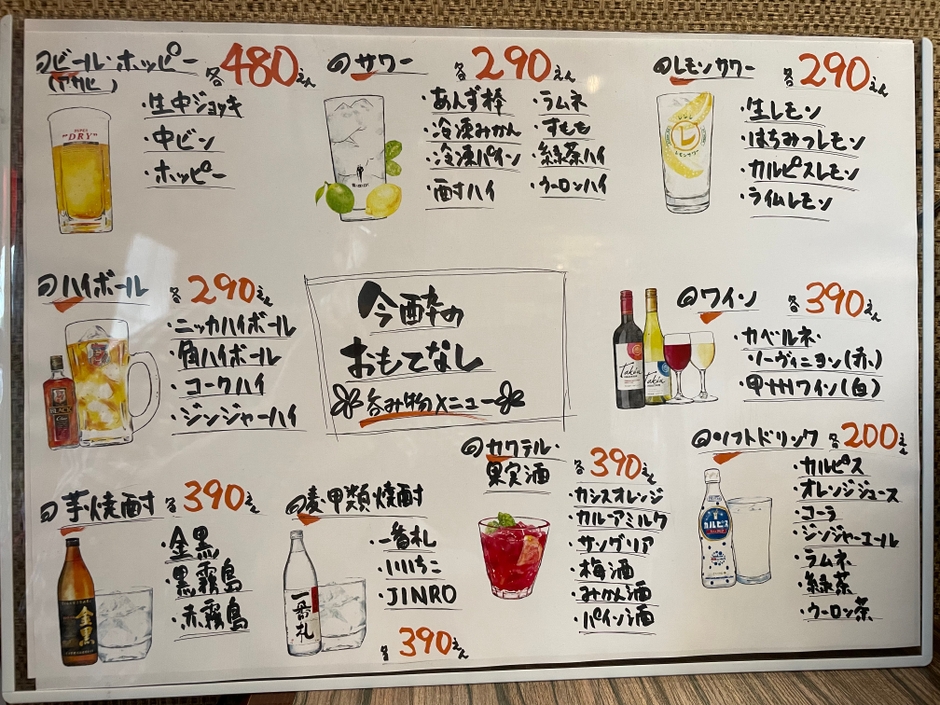 のビール・ホッピー 各480えん
(アサヒ)
・生中ジョッキ
・中ビン
・ホッピー
"DRY"
のサワー 各290えん
・あんず棒
・冷凍みかん
・冷凍パイン
・酎ハイ
・ラムネ
・すもも
・緑茶ハイ
・ウーロンハイ
のレモンサワー 各290えん
・生レモン
・はちみつレモン
・カルピスレモン
・ライムレモン
レ
レモンサワー
のハイボール 各290えん
・ニッカハイボール
・角ハイボール
・コークハイ
・ジンジャーハイ
BLACK
今酔の
おもてなし
呑み物メニュー
のワイン 各390えん
・カベルネ
ソーヴィニヨン(赤)
・甲州ワイン(白)
Takun
Takun
の芋焼酎 各390えん
・金黒
・黒霧島
・赤霧島
金黒
の麦・甲類焼酎
・一番札
・いいちこ
・JINRO
各390えん
一番札
のカクテル・
果実酒
各390えん
・カシスオレンジ
・カルーアミルク
・サングリア
・梅酒
・みかん酒
・パイン酒
のソフトドリンク 各200えん
・カルピス
・オレンジジュース
・コーラ
・ジンジャーエール
・ラムネ
・緑茶
・ウーロン茶
カルピス